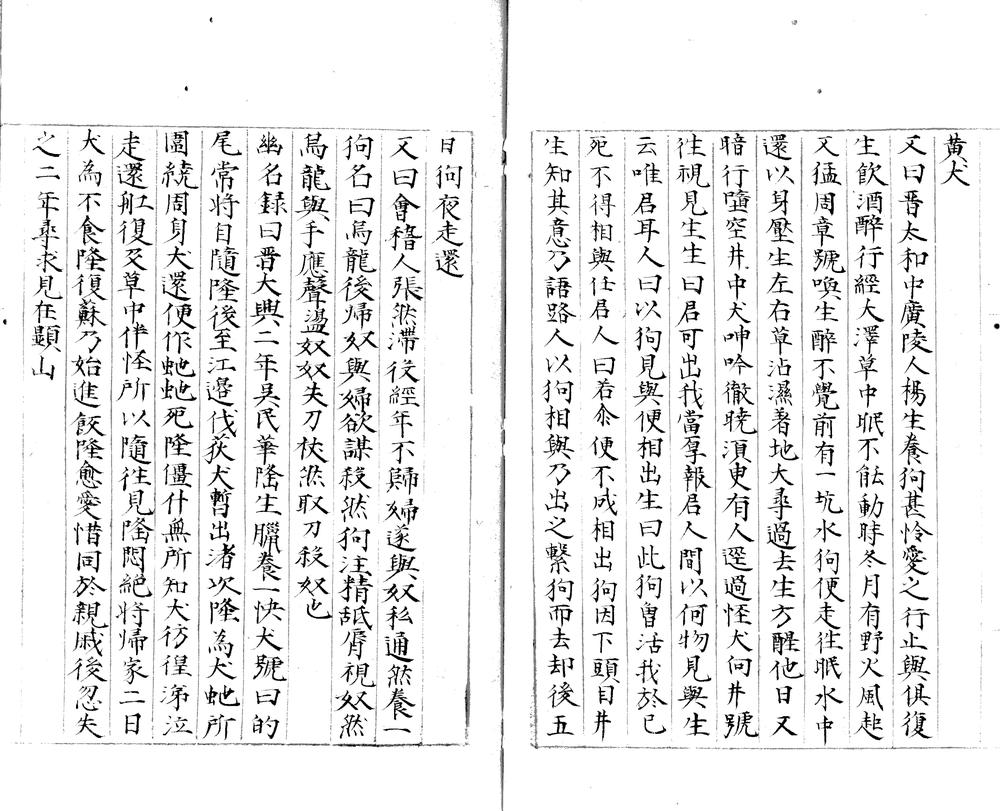 黄犬
又曰晋太和中廣陵人楊生養狗甚怜愛之行止與俱復
生飲酒醉行經大澤草中眠不能動時冬月有野火風起
又猛周章號喚生醉不覺前有一坑水狗便走往眠水中
還以身壓生左右草沾濕著地大尋過去生方醒他日又
暗行墮空井中犬呻吟徹曉須臾有人逕過恠犬向井號
往視見生生曰君可出我當厚報君人間以何物見與生
云唯君耳人曰以狗見與便相出生曰此狗曽活我於已
死不得相與任君人曰若尒便不成相出狗因下頭目井
生知其意乃語路人以狗相與乃出之繫狗而去却後五
日狗夜走還
又曰會稽人張然滯役經年不歸婦遂與奴私通然養一
狗名曰烏龍後帰奴與婦欲謀殺然狗注精舐脣視奴然
烏龍與手應聲盪奴奴失刀杖然取刀殺奴也
幽名録曰晋大興二年吳民華隆生臘養一快犬號曰的
尾常將自隨隆後至江邉伐荻犬暫出渚次隆為犬虵所
圍繞周身犬還便作虵虵死隆僵什無所知犬彷徨涕泣
走還舡復反草中伴怪所以隨往見隆悶絕將帰家二日
犬為不食隆復蘇乃始進飯隆愈愛惜同於親戚後忽失
之二年尋求見在顯山